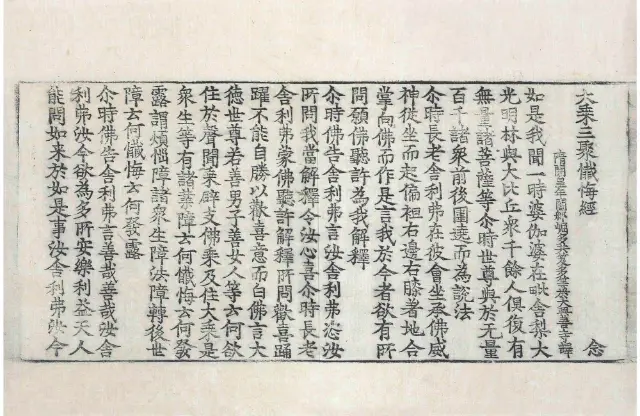 大乘三聚懺悔經
隋開皇年闍那崛多共笈多等於大興善寺譯
念
如是我聞一時婆伽婆在毗舍梨大
光明林與大比丘衆千餘人俱復有
無量諸菩薩等尒時世尊與於無量
百千諸衆前後圍遶而為說法
尒時長老舍利弗在彼會坐承佛威
神從坐而起偏袒右邊右膝著地合
掌向佛而作是言我於今者欲有所
問願佛聽許為我解釋
尒時佛告舍利弗言汝舍利弗恣汝
所問我當解釋令汝心喜尒時長老
舍利弗蒙佛聽許解釋所問歡喜踊
躍不能自勝以歡喜意而白佛言大
德世尊若善男子善女人等云何欲
住於聲聞乘辟支佛乘及住大乘是
衆生等有諸業障云何懺悔云何發
露謂煩惱障諸衆生障法障轉後世
障云何懺悔云何發露
尒時佛告舍利弗言善哉善哉汝舍
利弗汝今欲為多所安樂利益天人
能問如来於如是事汝舍利弗汝今